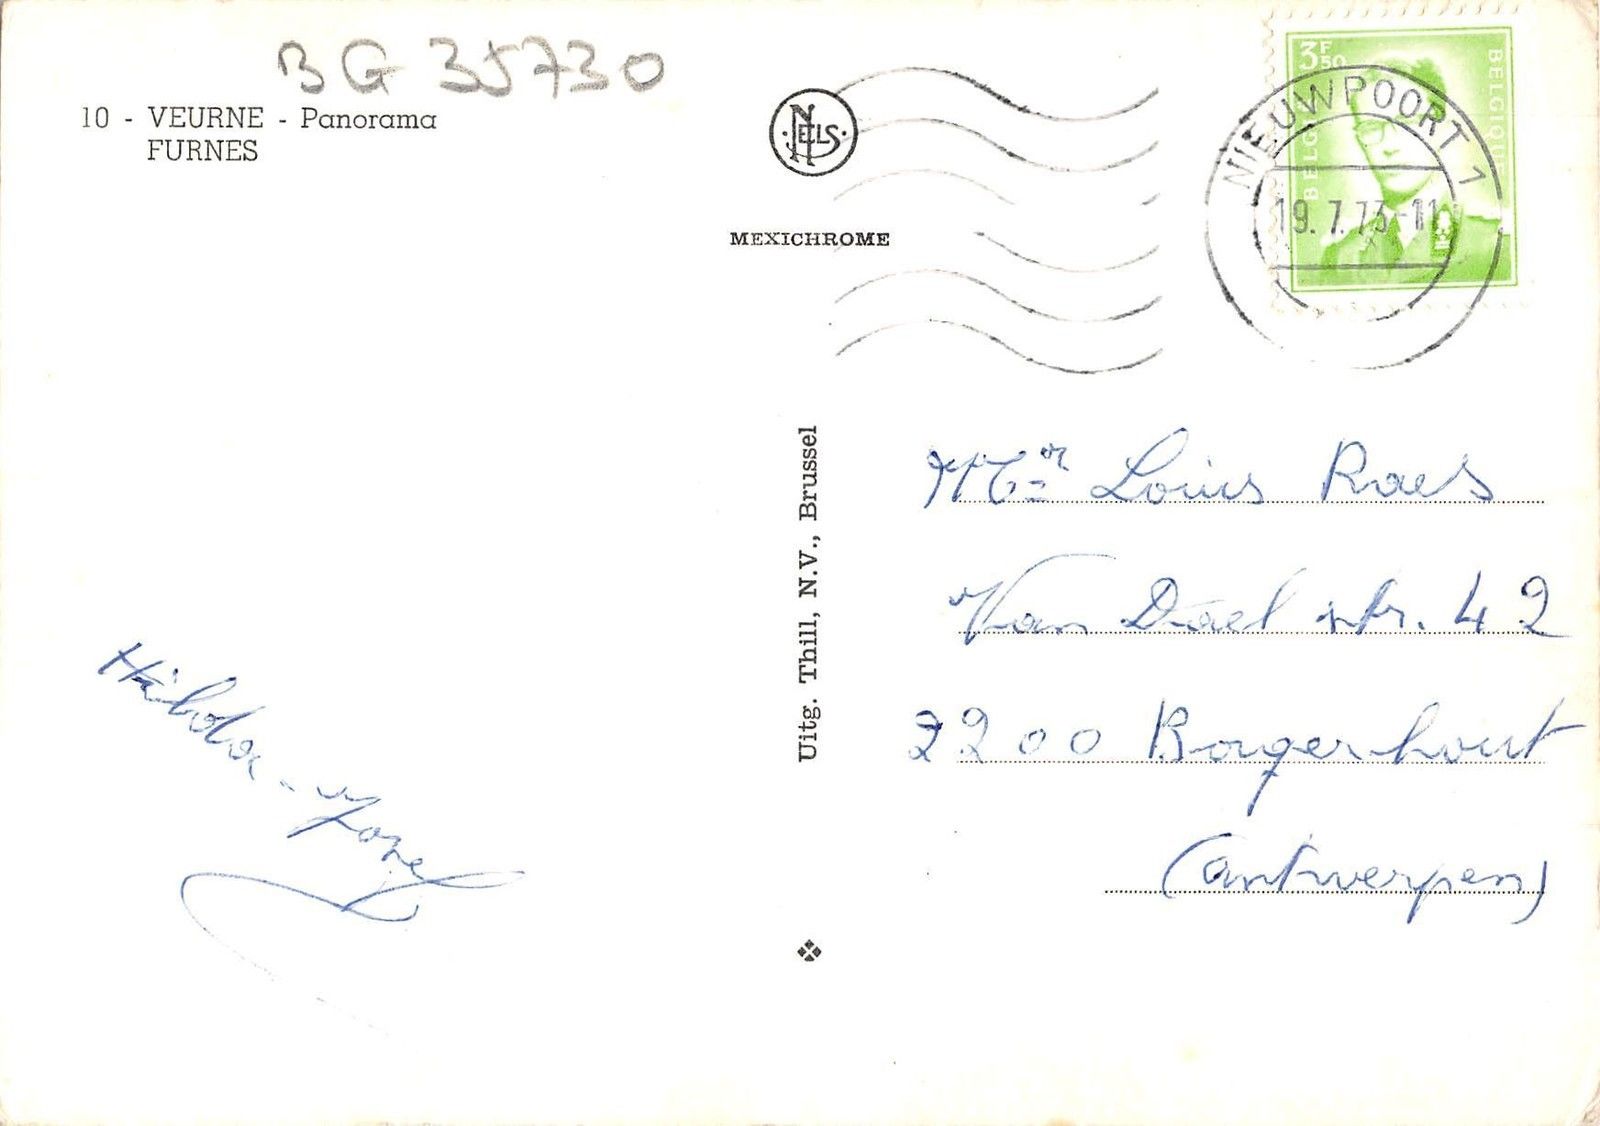 BG 35730
10 - VEURNE - Panorama
FURNES
NELS
MEXICHROME
3F50
BELGIE
BELGIQUE
NIEUWPOORT 1
19.7.73-11
Uitg. Thill, N.V., Brussel
Mr Louis Raes
Van Dael str. 42
2200 Borgerhout
(Antwerpen)
Hilda - Jozef